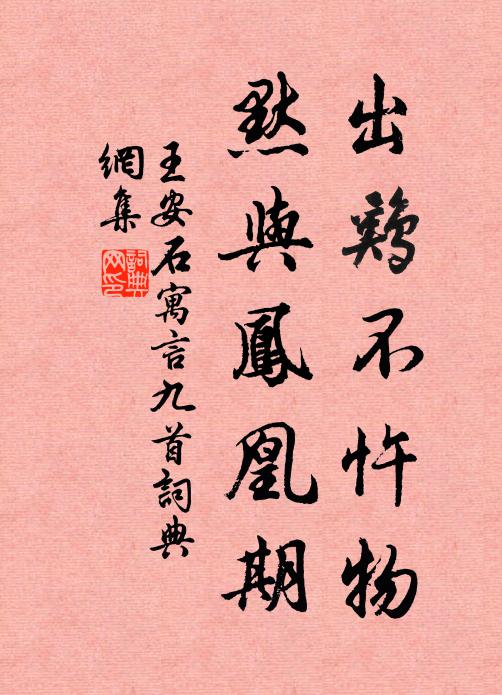 出鷄不忤物
默與鳳凰期
王安石寓言九首詞典
網集
詞典
网印